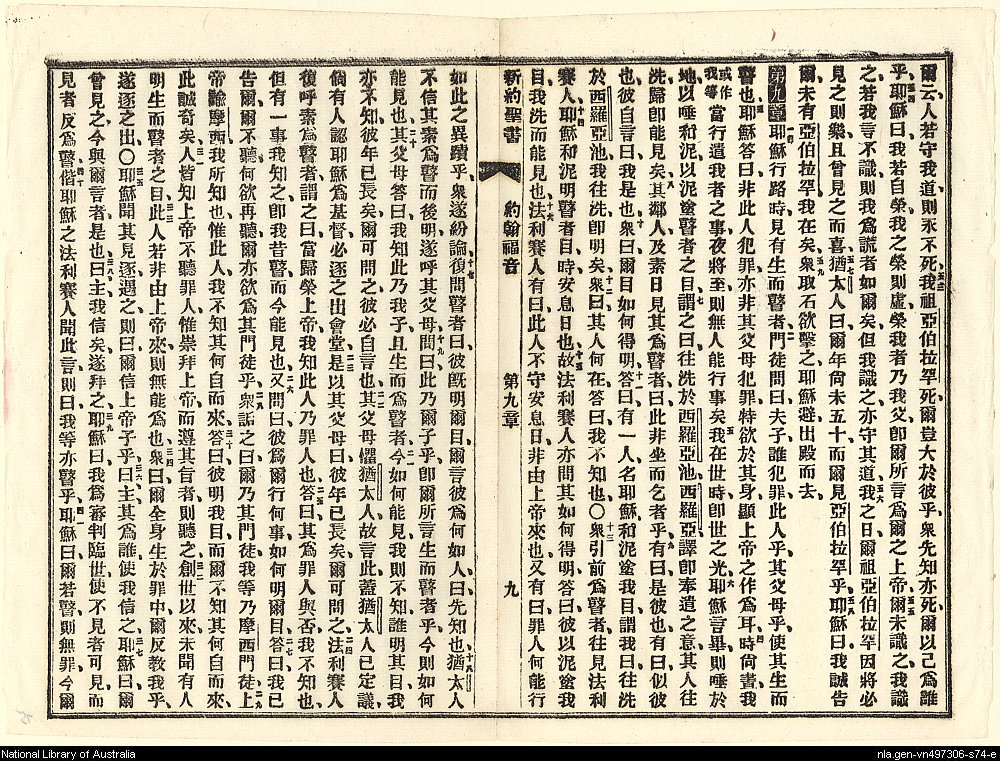 爾云人若守我道則永不死我祖亞伯拉罕死爾豈大於彼乎衆先知亦死爾以己爲誰
乎耶穌曰我若自榮我之榮則虛榮我者乃我父卽爾所言爲爾之上帝爾未識之我識
之若我言不識則我爲謊者如爾矣但我識之亦守其道我之日爾祖亞伯拉罕因將必
見之則樂且曾見之而喜猶太人曰爾年尚未五十而爾見亞伯拉罕乎耶穌曰我誠告
爾未有亞伯拉罕我在矣衆取石欲擊之耶穌避出殿而去
第九章耶穌行路時見有生而瞽者門徒問曰夫子誰犯罪此人乎其父母乎使其生而
瞽也耶穌答曰非此人犯罪亦非其父母犯罪特欲於其身顯上帝之作爲耳時尚晝我
或作我等當行遣我者之事夜將至則無人能行事矣我在世時卽世之光耶穌言畢則唾於
地以唾和泥以泥塗瞽者之目謂之曰往洗於西羅亞池西羅亞譯卽奉遣之意其人往
洗歸卽能見矣其鄰人及素日見其爲瞽者曰此非坐而乞者乎有曰是彼也有曰似彼
也彼自言曰我是也衆曰爾目如何得明答曰有一人名耶穌和泥塗我目謂我曰往洗
於西羅亞池我往洗卽明矣衆曰其人何在答曰我不知也○衆引前爲瞽者往見法利
賽人耶穌和泥明瞽者目時安息日也故法利賽人亦問其如何得明答曰彼以泥塗我
目我洗而能見也法利賽人有曰此人不守安息日非由上帝來也又有曰罪人何能行
新約聖書 約翰福音 第九章 九
如此之異蹟乎衆遂紛論復問瞽者曰彼旣明爾目爾言彼爲何如人曰先知也猶太人
不信其素爲瞽而後明遂呼其父母問曰此乃爾子乎卽爾所言生而瞽者乎今則如何
能見也其父母答曰我知此乃我子且生而爲瞽者今如何能見我則不知誰明其目我
亦不知彼年已長矣爾可問之彼必自言也其父母懼猶太人故言此蓋猶太人已定議
倘有人認耶穌爲基督必逐之出會堂是以其父母曰彼年已長矣爾可問之法利賽人
復呼素爲瞽者謂之曰當歸榮上帝我知此人乃罪人也答曰其爲罪人與否我不知也
但有一事我知之卽我昔瞽而今能見也又問曰彼爲爾行何事如何明爾目答曰我已
告爾爾不聽何欲再聽爾亦欲爲其門徒乎衆詬之曰爾乃其門徒我等乃摩西門徒上
帝諭摩西我所知也惟此人我不知其何自而來答曰彼明我目而爾不知其何自而來
此誠奇矣人皆知上帝不聽罪人惟崇拜上帝而遵其旨者則聽之創世以來未聞有人
明生而瞽者之目此人若非由上帝來則無能爲也衆曰爾全身生於罪中爾反教我乎
遂逐之出○耶穌聞其見逐遇之則曰爾信上帝子乎曰主其爲誰使我信之耶穌曰爾
曾見之今與爾言者是也曰主我信矣遂拜之耶穌曰我爲審判臨世使不見者可見而
見者反爲瞽偕耶穌之法利賽人聞此言則曰我等亦瞽乎耶穌曰爾若瞽則無罪今爾
National Library of Australia
nla.gen-vn497306-s74-e